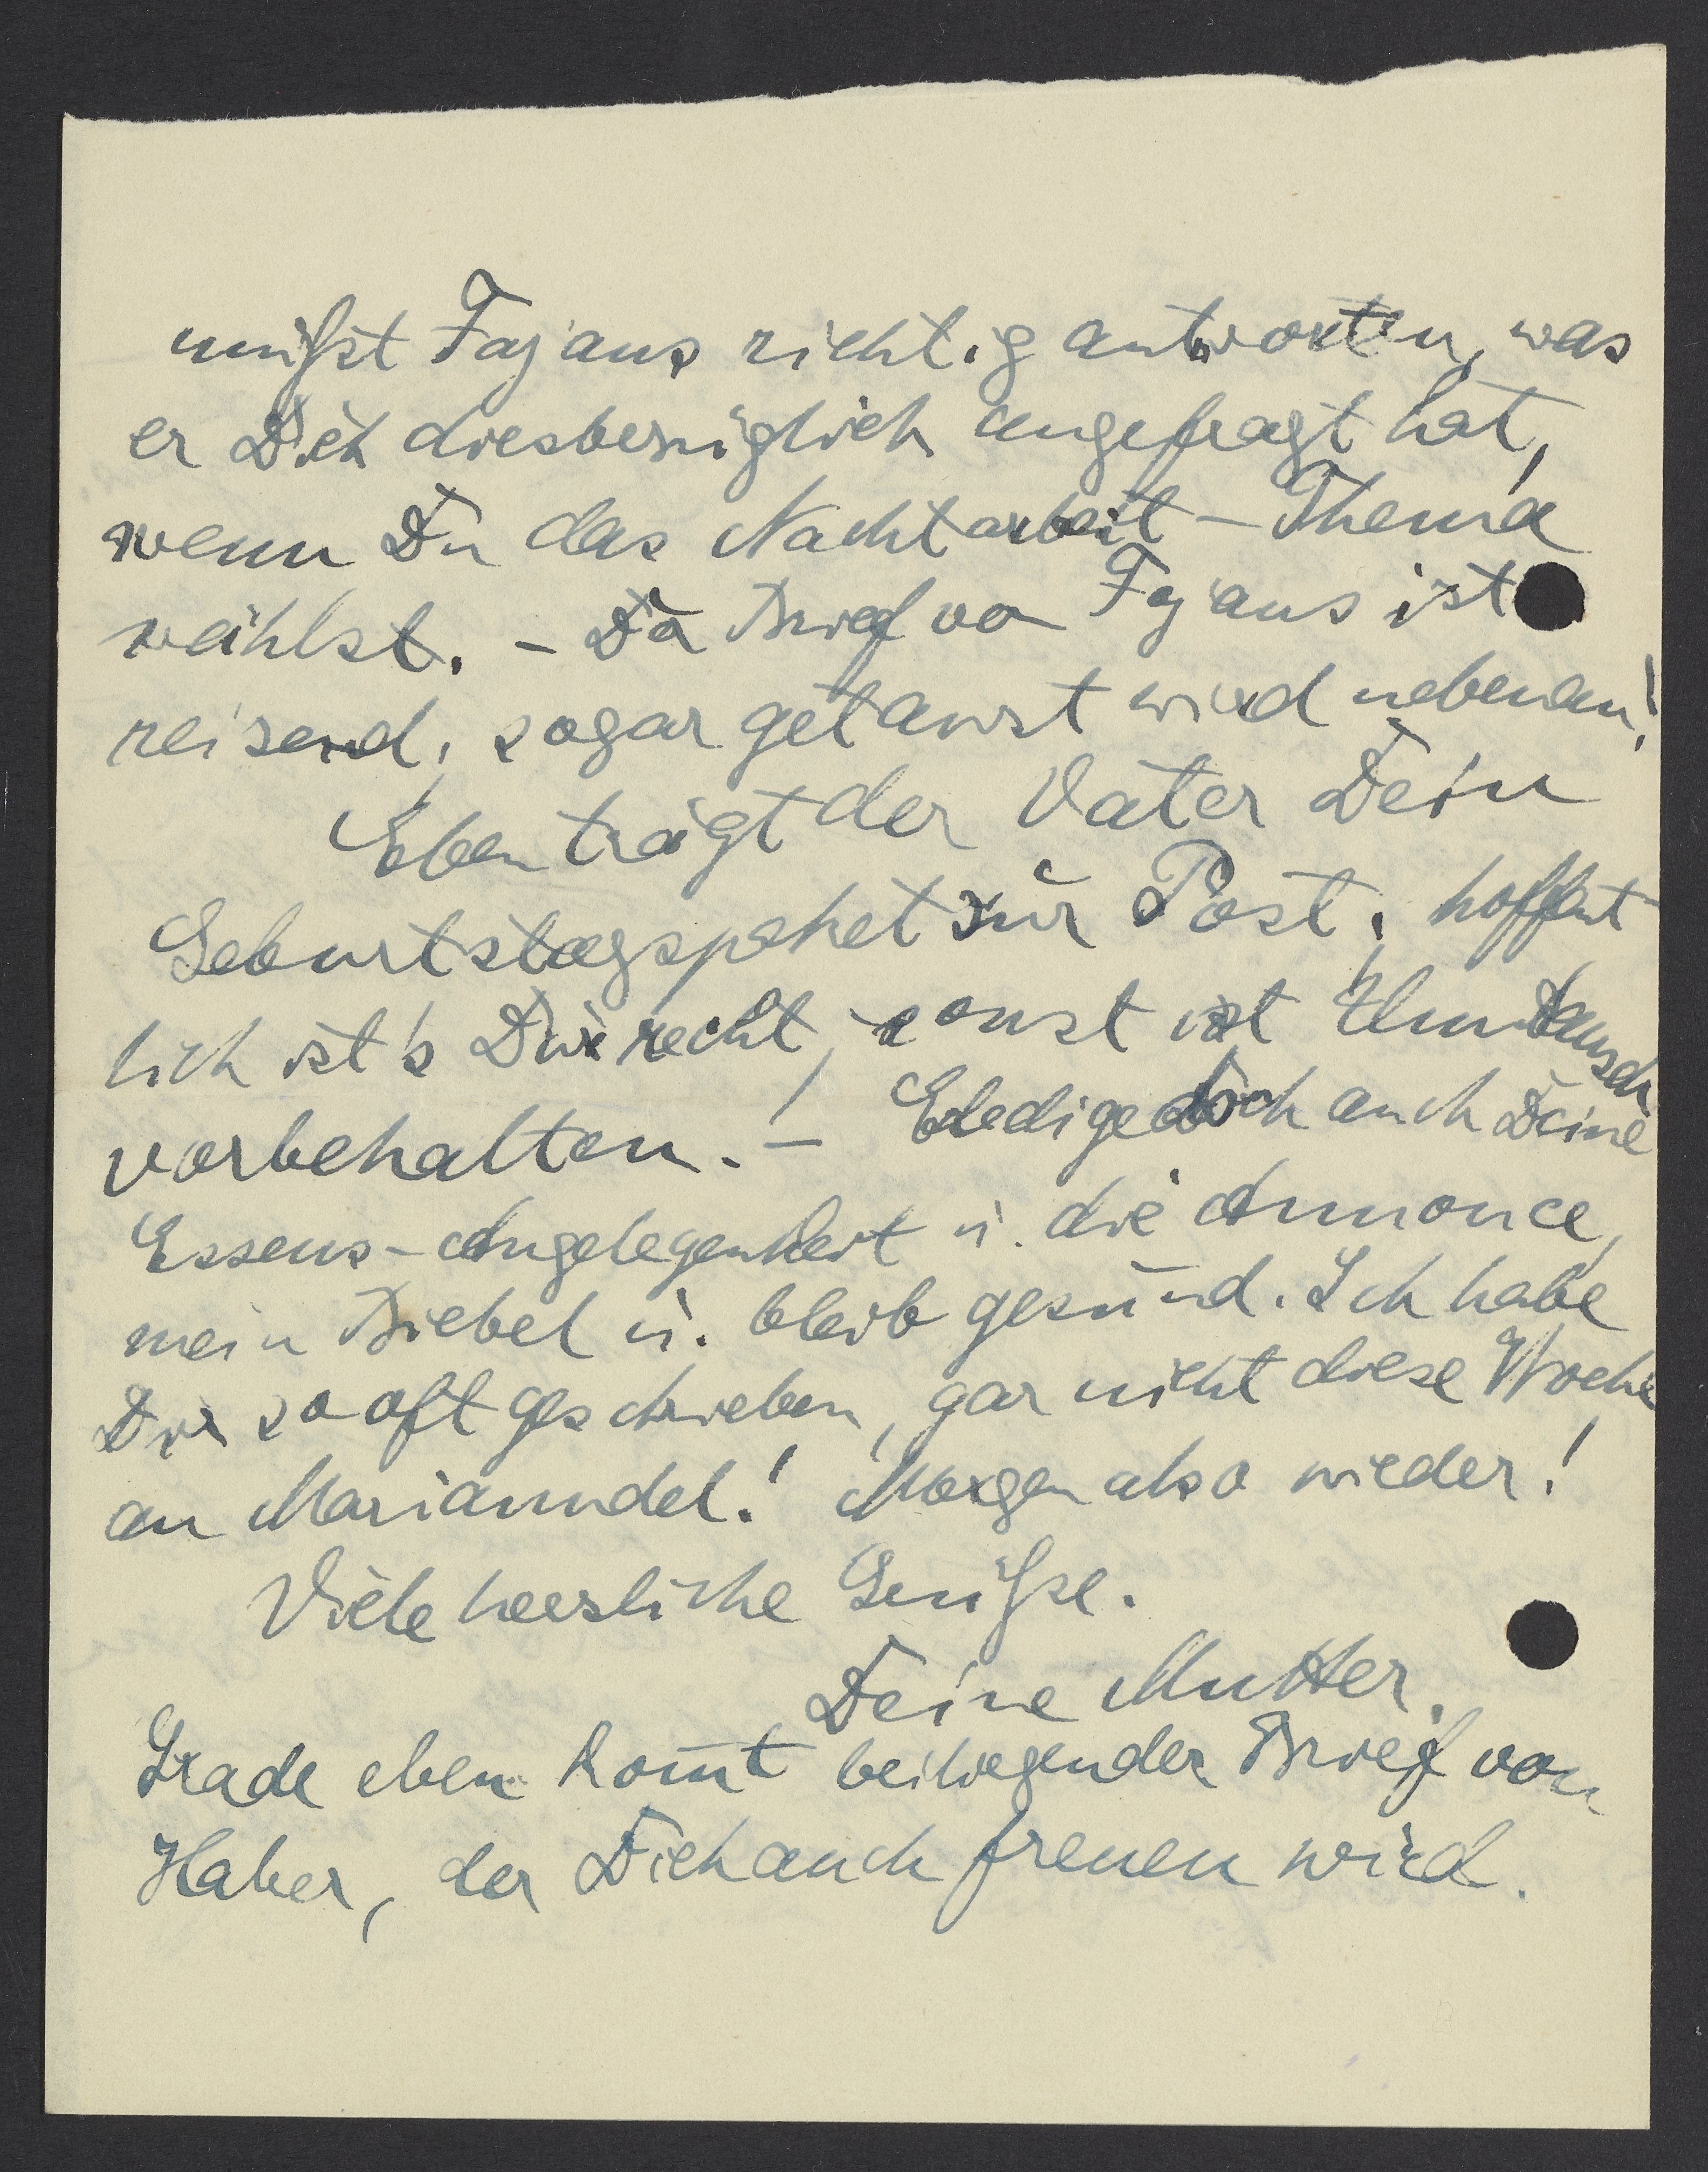 mußt Fajans richtig antworten, was
er Dich diesbezüglich angefragt hat,
wenn Du das Nachtarbeit-Thema
wählst. - Da Brief von Fajans ist
reizend, sogar getanzt wird nebenan!
Eben trägt der Vater Dein
Geburtstagspaket zur Post, hoffent-
lich ist's Dir recht, sonst ist Umtausch
vorbehalten. - Erledige doch auch Deine
Essens-Angelegenheit u. die Annonce,
mein Biebel u. bleib gesund. Ich habe
Dir so oft geschrieben, gar nicht diese Woche
an Marianndel! Morgen also wieder!
Viele herzliche Grüße.
Deine Mutter.
Grade eben kom̄t beiliegender Brief von
Haber, der Dich auch freuen wird.